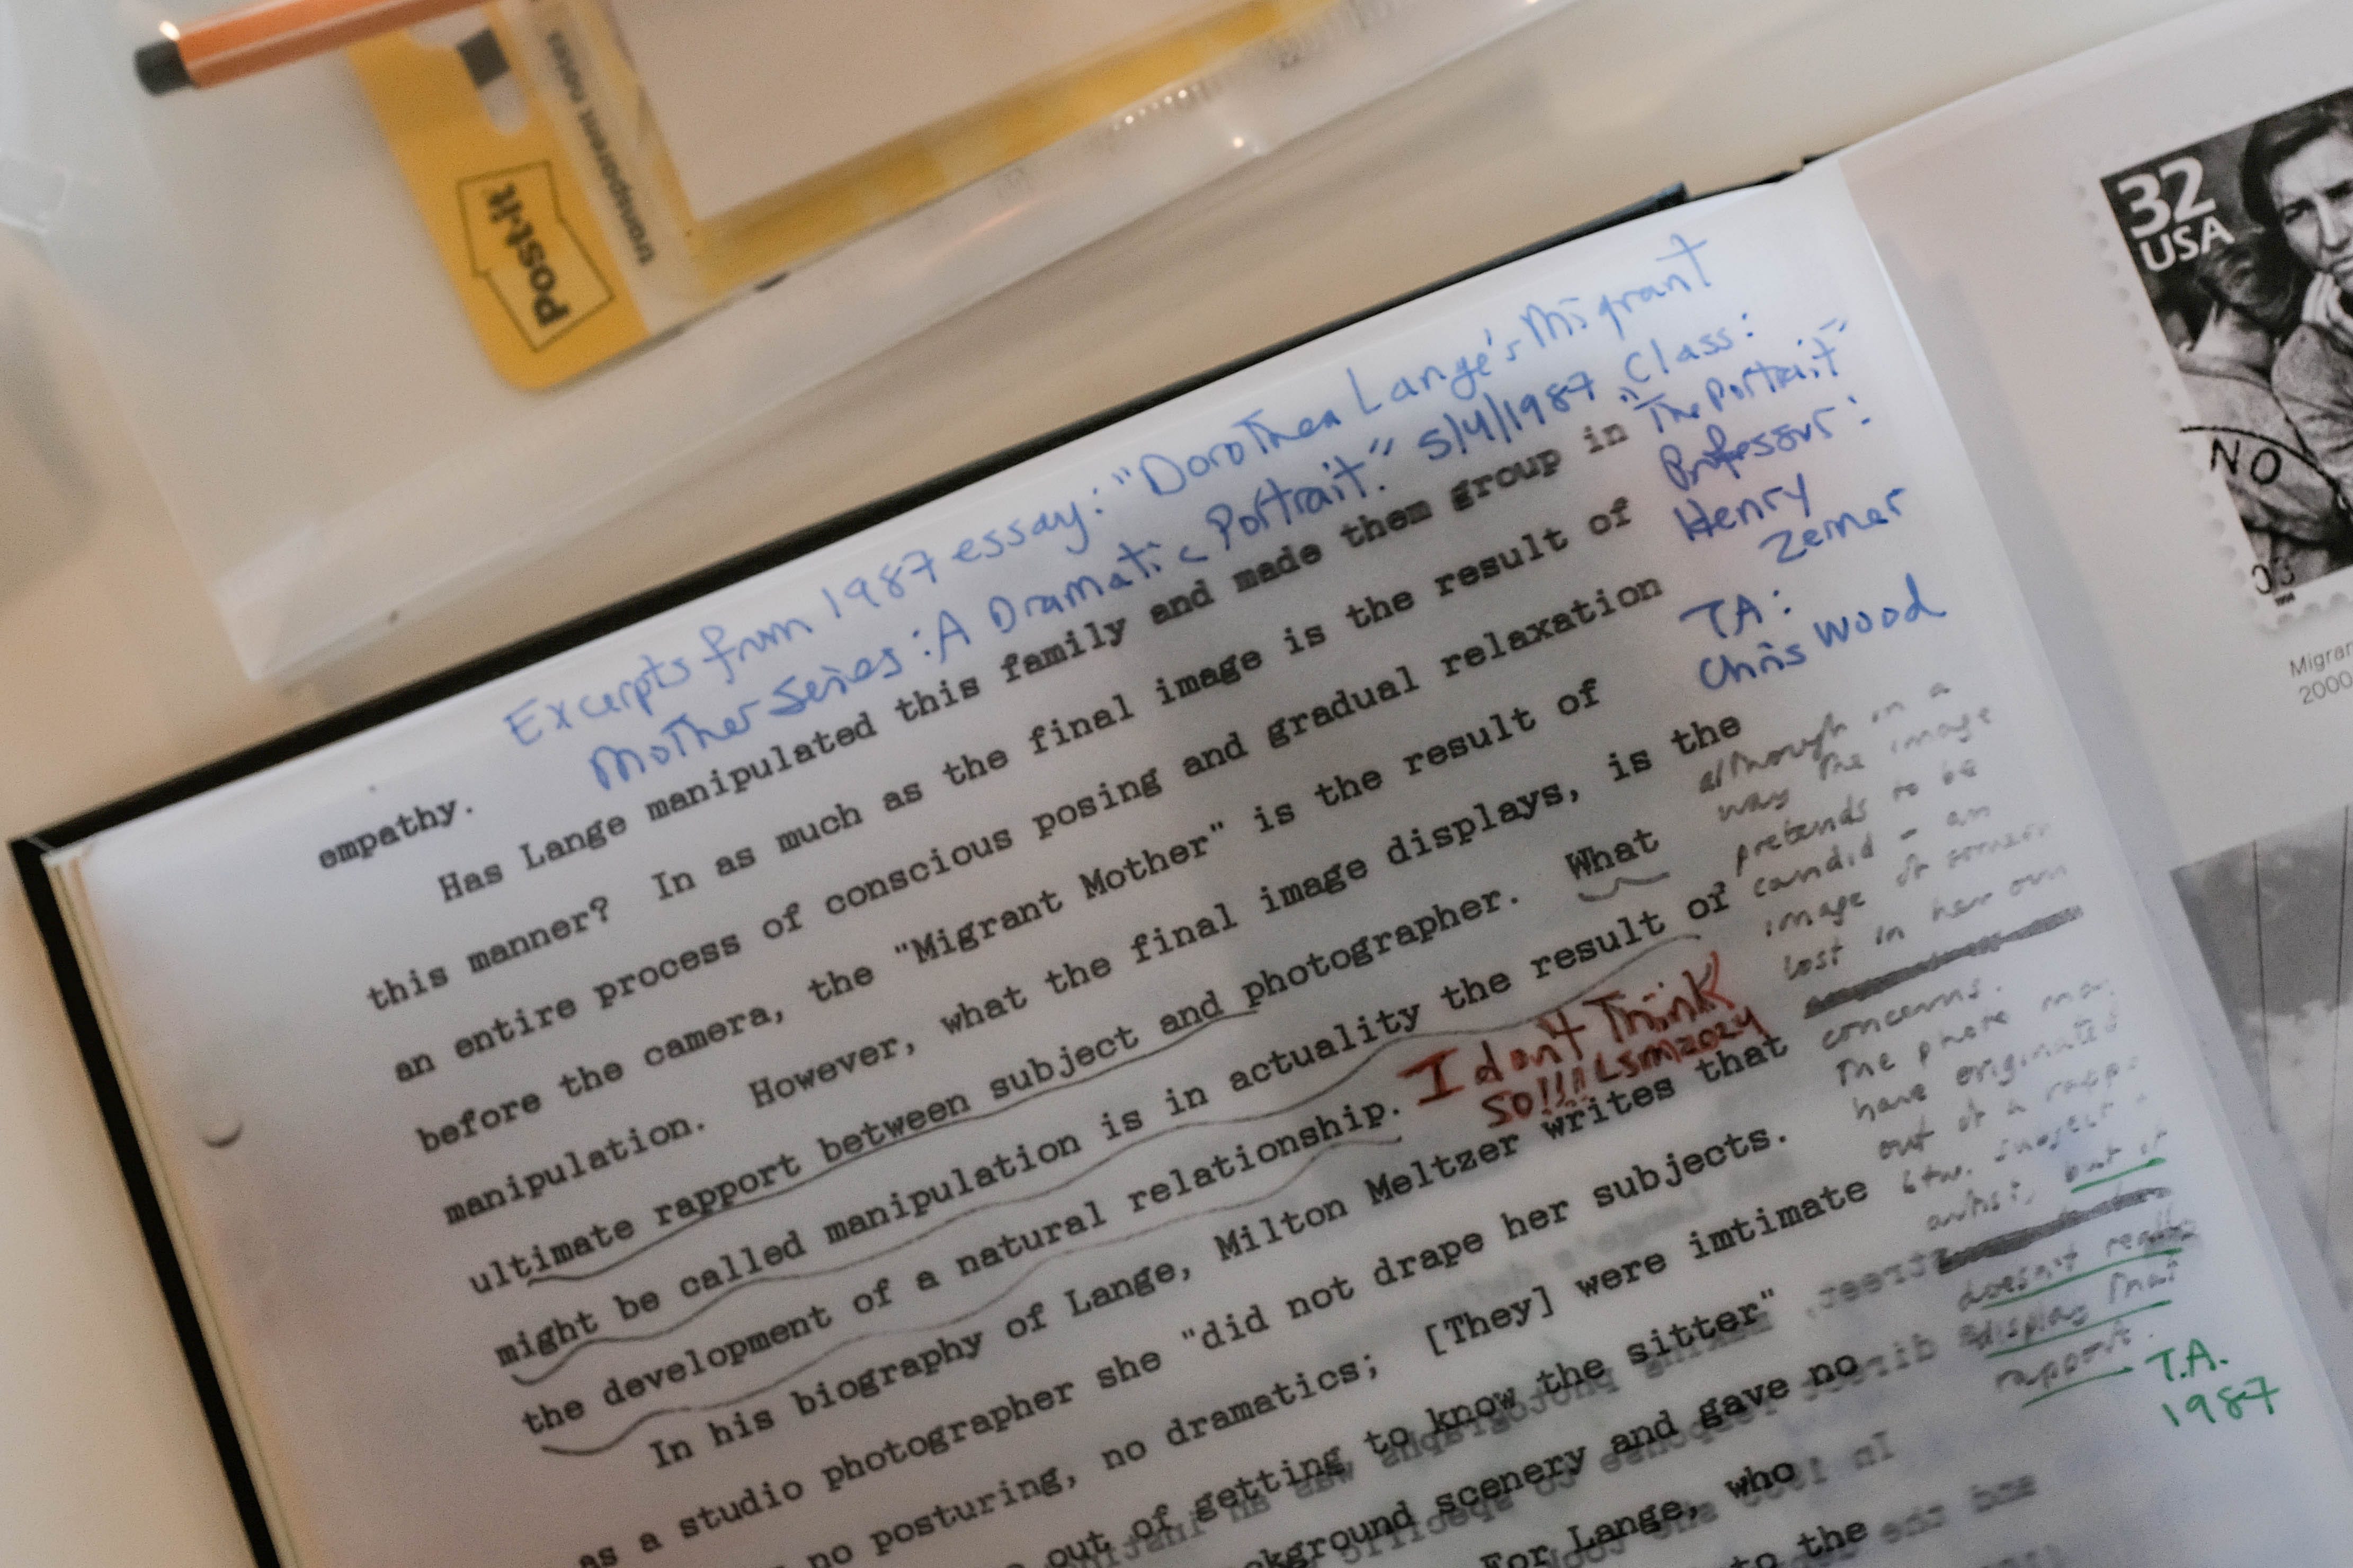 Post-it
transparent notes
32
USA
NO
03
Migran
2000
Excerpts from 1987 essay: "Dorothea Lange's Migrant
Mother Series: A Dramatic Portrait." 5/4/1987
Class:
"The Portrait"
Professor:
Henry
Zerner
TA:
Chris Wood
empathy.
Has Lange manipulated this family and made them group in
this manner? In as much as the final image is the result of
an entire process of conscious posing and gradual relaxation
before the camera, the "Migrant Mother" is the result of
manipulation. However, what the final image displays, is the
ultimate rapport between subject and photographer. What
might be called manipulation is in actuality the result of
the development of a natural relationship.
I don't Think
SO!!! LSM2024
In his biography of Lange, Milton Meltzer writes that
as a studio photographer she "did not drape her subjects.
no posturing, no dramatics; [They] were imtimate
out of getting to know the sitter"
ckground scenery and gave no
For Lange, who
to the
although in a
way the image
pretends to be
candid - an
image of someon
lost in her own
concerns.
The photo may
have originated
out of a rapp
btw. subject
artist, but it
doesn't really
display that
rapport.
T.A.
1987